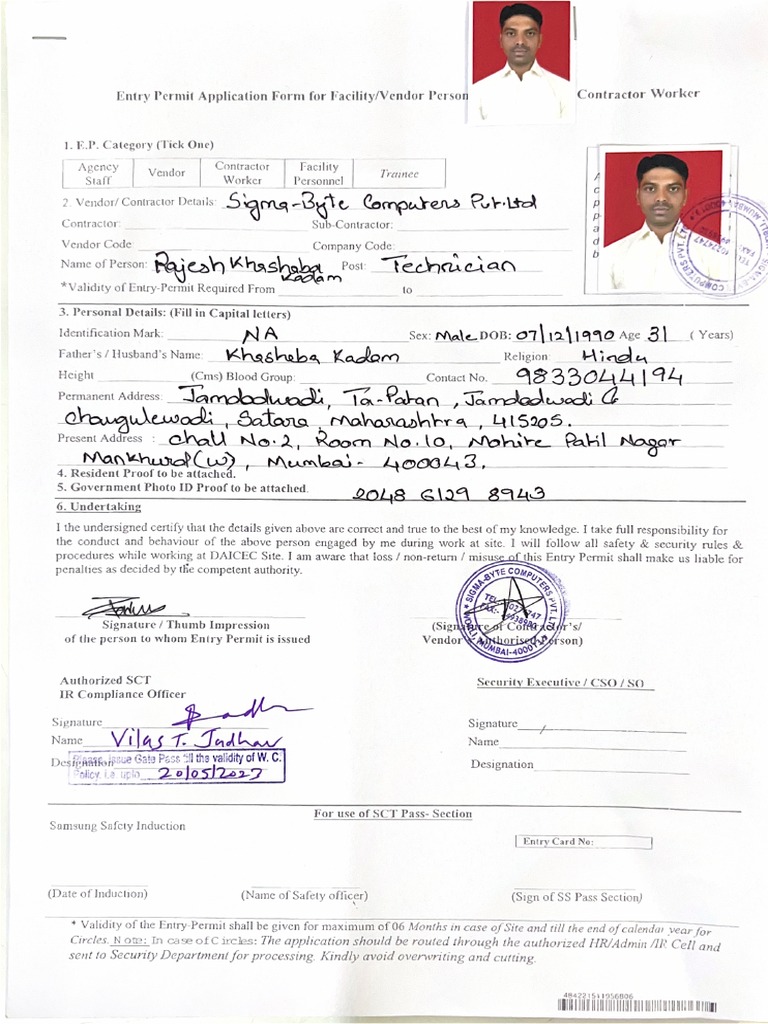 Entry Permit Application Form for Facility/Vendor Person Contractor Worker
1. E.P. Category (Tick One)
Agency Staff Vendor Contractor Worker Facility Personnel Trainee
2. Vendor/ Contractor Details: Sigma-Byte Computers Pvt.Ltd
Contractor: Sub-Contractor:
Vendor Code: Company Code:
Name of Person: Rajesh Khashaba Kadam Post: Technician
*Validity of Entry-Permit Required From to
3. Personal Details: (Fill in Capital letters)
Identification Mark: NA Sex: Male DOB: 07/12/1990 Age 31 ( Years)
Father's / Husband's Name: Khashaba Kadam Religion: Hindu
Height (Cms) Blood Group: Contact No. 9833044194
Permanent Address: Jamdadwadi, Ta-Patan, Jamdadwadi
Chaugulewadi, Satara, Maharashtra, 415205.
Present Address : Chall No.2, Room No.10, Mohite Patil Nagar
Mankhurd(W), Mumbai- 400043.
4. Resident Proof to be attached.
5. Government Photo ID Proof to be attached. 2048 6129 8943
6. Undertaking
I the undersigned certify that the details given above are correct and true to the best of my knowledge. I take full responsibility for
the conduct and behaviour of the above person engaged by me during work at site. I will follow all safety & security rules &
procedures while working at DAICEC Site. I am aware that loss / non-return / misuse of this Entry Permit shall make us liable for
penalties as decided by the competent authority.
SIGMA-BYTE COMPUTERS PVT. LTD.
Signature / Thumb Impression (Signature of Contractor's/
of the person to whom Entry Permit is issued Vendor's Authorised Person)
Authorized SCT Security Executive / CSO / SO
IR Compliance Officer
Signature Signature
Name Vilas T. Jadhav Name
Designation Designation
Please Issue Gate Pass till the validity of W. C.
Policy. i.e. upto 20/05/2023
For use of SCT Pass- Section
Samsung Safety Induction
Entry Card No:
(Date of Induction) (Name of Safety officer) (Sign of SS Pass Section)
* Validity of the Entry-Permit shall be given for maximum of 06 Months in case of Site and till the end of calendar year for
Circles. Note: In case of Circles: The application should be routed through the authorized HR/Admin /IR Cell and
sent to Security Department for processing. Kindly avoid overwriting and cutting.